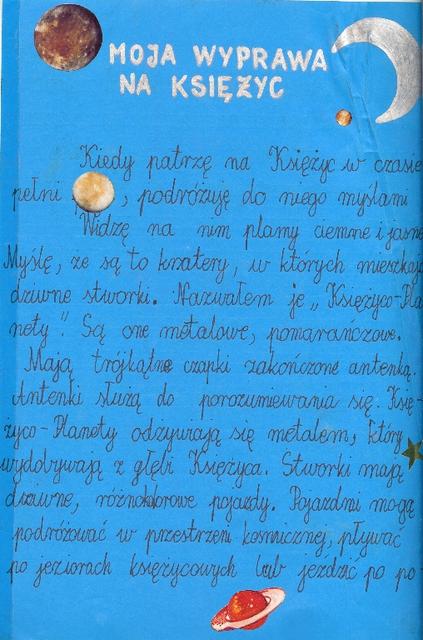 MOJA WYPRAWA
NA KSIĘŻYC
Kiedy patrzę na Księżyc w czasie
pełni , podróżuję do niego myślami
Widzę na nim plamy ciemne i jasne
Myślę, że są to kratery, w których mieszkają
dziwne stworki. Nazwałem je „Księżyco-Pla
nety". Są one metalowe, pomarańczowe.
Mają trójkątne czapki zakończone antenką.
Antenki służą do porozumiewania się. Księ-
życo-Planety odżywiają się metalem, który
wydobywają z głębi Księżyca. Stworki mają
dziwne, różnokolorowe pojazdy. Pojazdni mogą
podróżować w przestrzeni kosmicznej, pływać
po jeziorach księżycowych lub jeździć po po